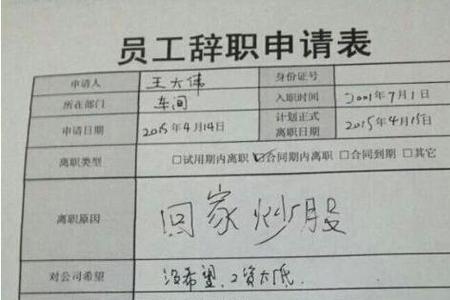 员工辞职申请表
申请人 王大伟 身份证号
所在部门 车间 入职时间 2001年7月1日
申请日期 2015年4月14日 计划正式离职日期 2015年4月15日
离职类型 □试用期内离职 ☑合同期内离职 □合同到期 □其它
离职原因 回家炒股
对公司希望 没希望、工资太低.